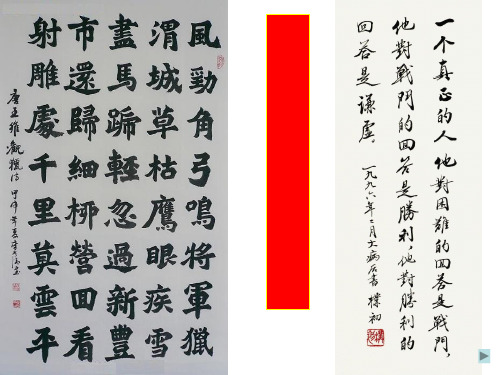 風勁角弓鳴將軍獵
渭城草枯鷹眼疾雪
盡馬蹄輕忽過新豐
市還歸細柳營回看
射雕處千里莫雲平
唐王維觀獵詩
一个真正的人他對困難的回答是戰鬥,
他對戰鬥的回答是勝利,他對勝利的
回答是谦虛。
一九九六年二月大病后書 樸初